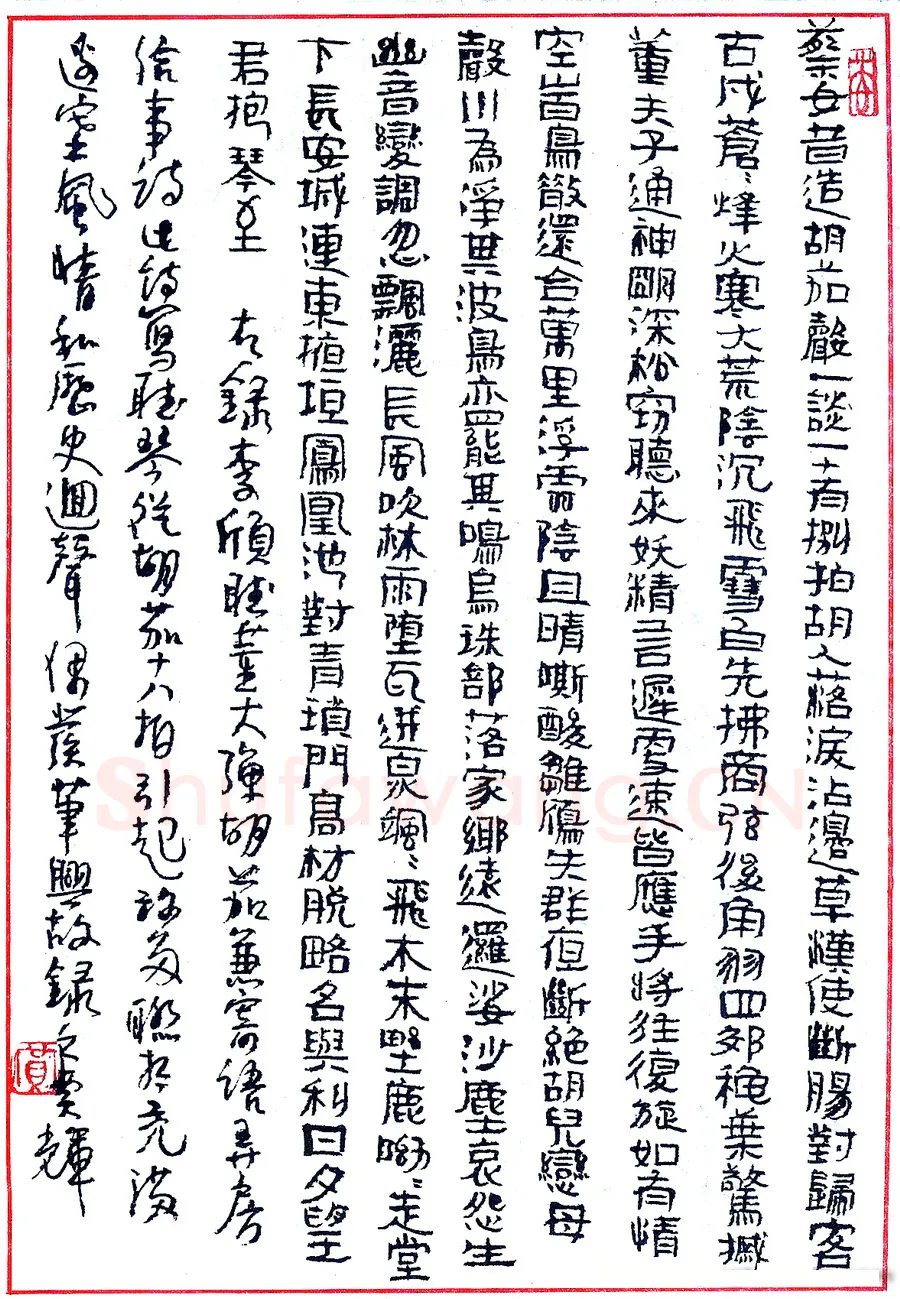 蔡女昔造胡茄聲一談一十有捌拍胡人落淚沾邊草漢使斷腸對歸客
古戍蒼〻烽火寒大荒陰沉飛雪白先拂商弦後角羽四郊穐葉驚摵
董夫子通神明深松窃聽來妖精言遲更速皆應手將往復旋如有情
空山百鳥散還合萬里浮雲陰且晴嘶酸雛鴈失群夜斷絕胡兒戀母
聲川為淨其波鳥亦罷其鳴烏珠部落家鄉遠邏娑沙塵哀怨生
幽音變調忽飄灑長風吹林雨墮瓦迸泉颯〻飛木末野鹿呦〻走堂
下長安城連東掖垣鳳凰池對青瑣門高材脫略名與利日夕望
君抱琴至 右錄李頎聽董大彈胡笳兼寄語弄房
給事詩此詩寫聽琴從胡茄十八拍引起許多聯想充滿
邊塞風情和歷史迴聲偶發筆興故錄之
Shufawang.CN